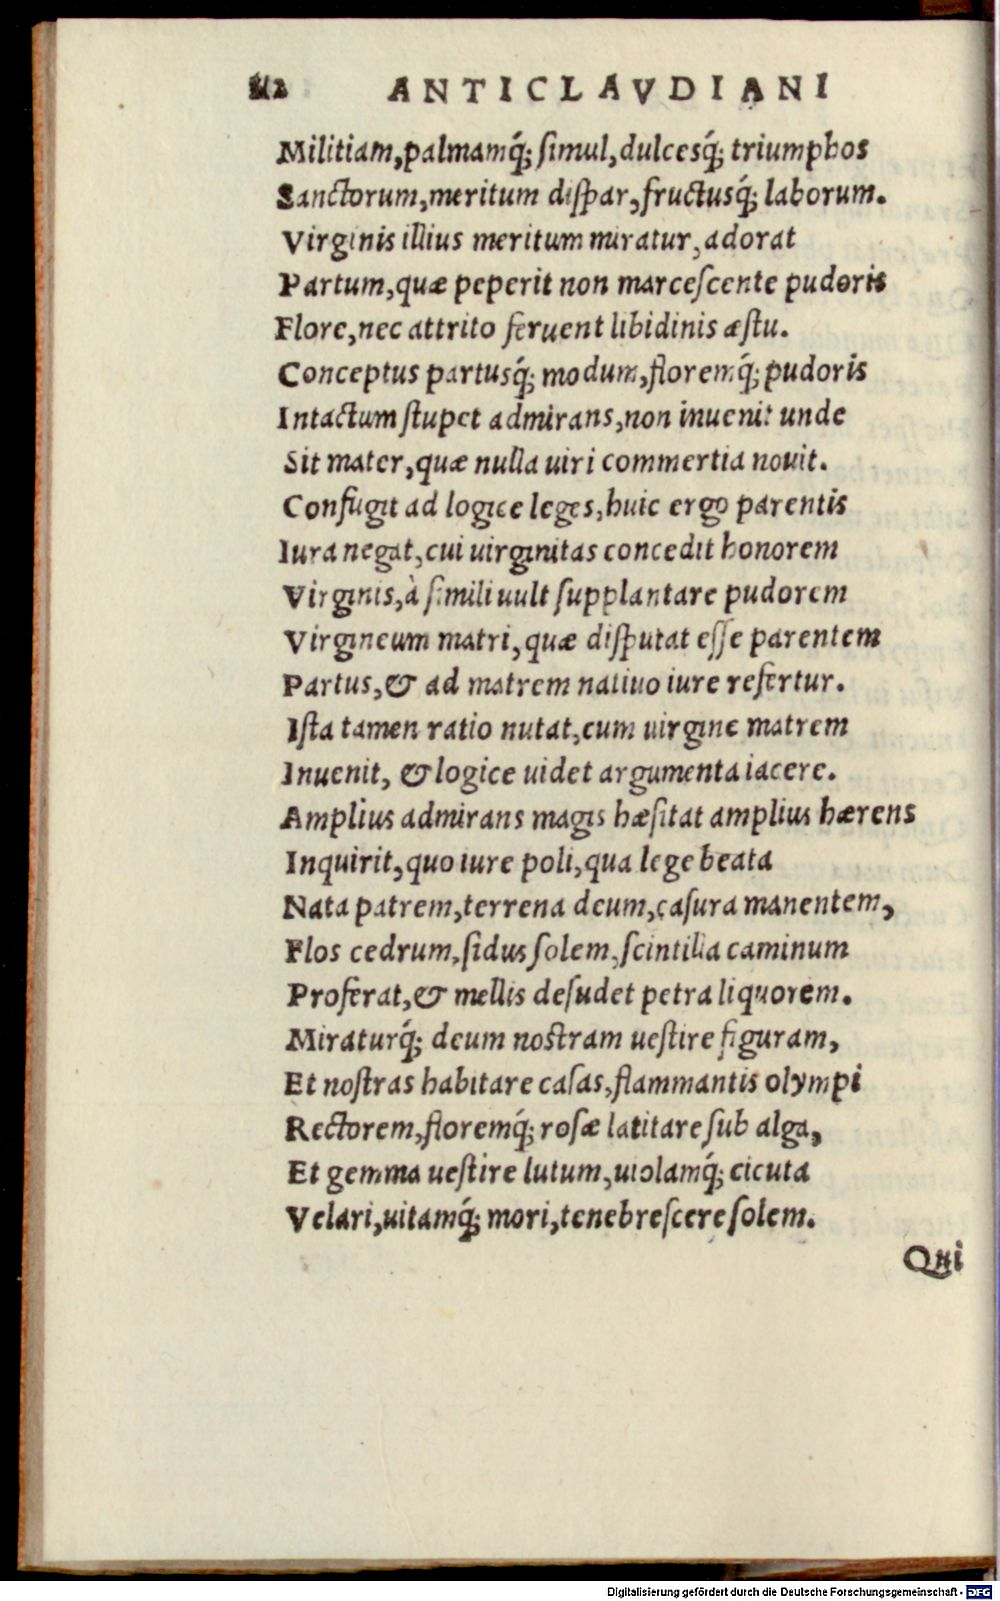 112 ANTICLAVDIANI
Militiam,palmamq́; ſimul,dulcesq́; triumphos
Sanctorum,meritum diſpar,fructusq́; laborum.
Virginis illius meritum miratur,adorat
Partum,quæ peperit non marceſcente pudoris
Flore,nec attrito feruent libidinis æſtu.
Conceptus partusq́; modum,floremq́; pudoris
Intactum ſtupet admirans,non inuenit unde
Sit mater,quæ nulla uiri commertia nouit.
Confugit ad logice leges,huic ergo parentis
Iura negat,cui uirginitas concedit honorem
Virginis,à ſimili uult ſupplantare pudorem
Virgineum matri,quæ diſputat eſſe parentem
Partus,& ad matrem natiuo iure refertur.
Iſta tamen ratio nutat,cum uirgine matrem
Inuenit, & logice uidet argumenta iacere.
Amplius admirans magis hæſitat amplius hærens
Inquirit,quo iure poli,qua lege beata
Nata patrem,terrena deum,caſura manentem,
Flos cedrum,ſidus ſolem,ſcintilla caminum
Proferat,& mellis deſudet petra liquorem.
Miraturq́; deum noſtram ueſtire figuram,
Et noſtras habitare caſas,flammantis olympi
Rectorem,floremq́; roſæ latitare ſub alga,
Et gemma ueſtire lutum,uiolamq́; cicuta
Velari,uitamq́; mori,tenebreſcere ſolem.
Qui
Digitalisierung gefördert durch die Deutsche Forschungsgemeinschaft - DFG